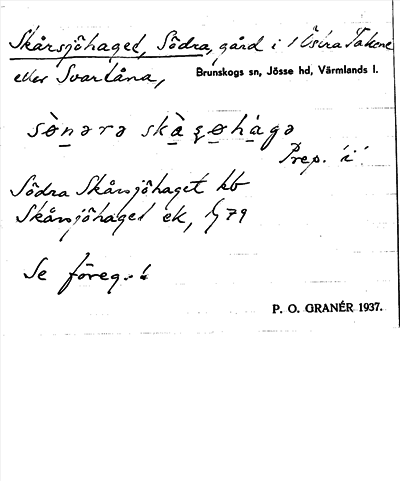 Skårsjöhaget, Södra, gård i 1 Östra Takene
eller Svartåna, Brunskogs sn, Jösse hd, Värmlands l.
sònǝrǝ skà
Prep. "i"
Södra Skårsjöhaget kb
Skårsjöhaget ek, 79
Se föreg.
P. O. GRANÉR 1937.